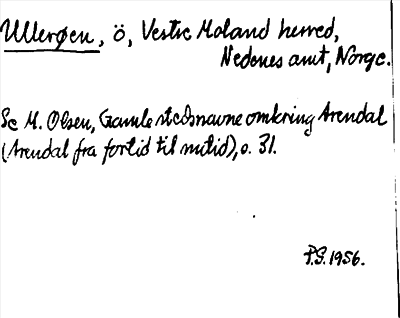 Ullerøen, ö, Vestre Moland herred,
Nedenes amt, Norge.
Se M. Olsen, Gamle stedsnavne omkring Arendal
(Arendal fra fortid til nutid), s. 31.
P.G. 1956.